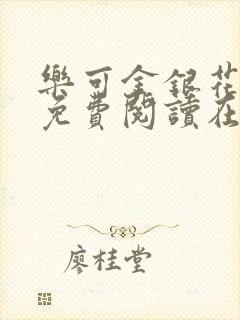 樂可金銀花
免費閱讀在
廖桂堂